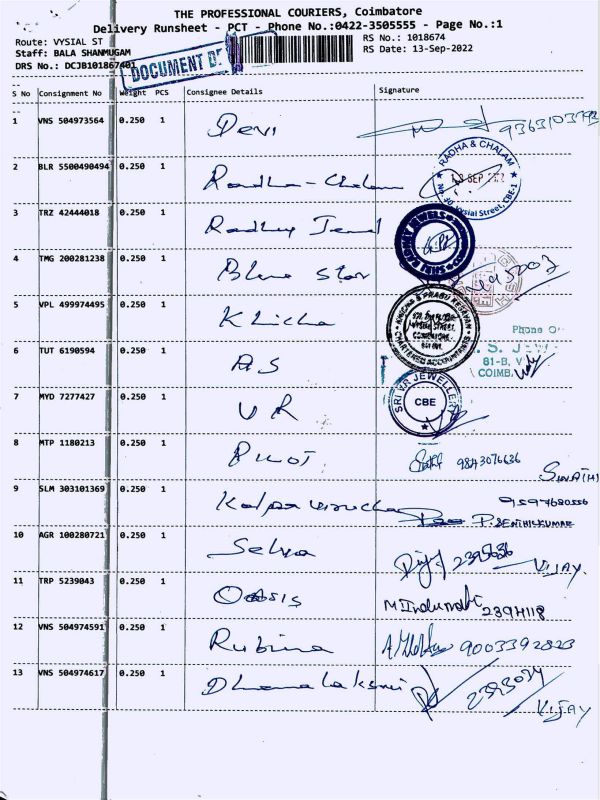 THE PROFESSIONAL COURIERS, Coimbatore
Delivery Runsheet - PCT - Phone No.:0422-3505555 - Page No.:1
Route: VYSIAL ST
RS No.: 1018674
Staff: BALA SHANMUGAM
RS Date: 13-Sep-2022
DRS No.: DCJB101867401
DOCUMENT
S No Consignment No Weight PCS Consignee Details Signature
1 VNS 504973564 0.250 1 Devi
2 BLR 5500490494 0.250 1 Radha-Chalam
RADHA & CHALAM
SEP
No. 30, Vysial Street, CBE-1
3 TRZ 42444018 0.250 1
SHRI RADHEY JEWELS
4 TMG 200281238 0.250 1 Blue Star
5 VPL 499974495 0.250 1 Khicha
KHICHA & PRABU KESAVAN
VYSIAL STREET,
CHARTERED ACCOUNTANTS
Phone
S. JEW
81-B, V
COIMB
6 TUT 6190594 0.250 1 AS
7 MYD 7277427 0.250 1 VR
SRI VR JEWELLER
CBE
8 MTP 1180213 0.250 1 9843076636
9 SLM 303101369 0.250 1
P. SENTHILKUMAR
10 AGR 100280721 0.250 1 Selva
VIJAY.
11 TRP 5239043 0.250 1 Oasis
M Indumathi 2394118
12 VNS 504974591 0.250 1 Rubina 9003392823
13 VNS 504974617 0.250 1 Dhanalakshmi
VIJAY